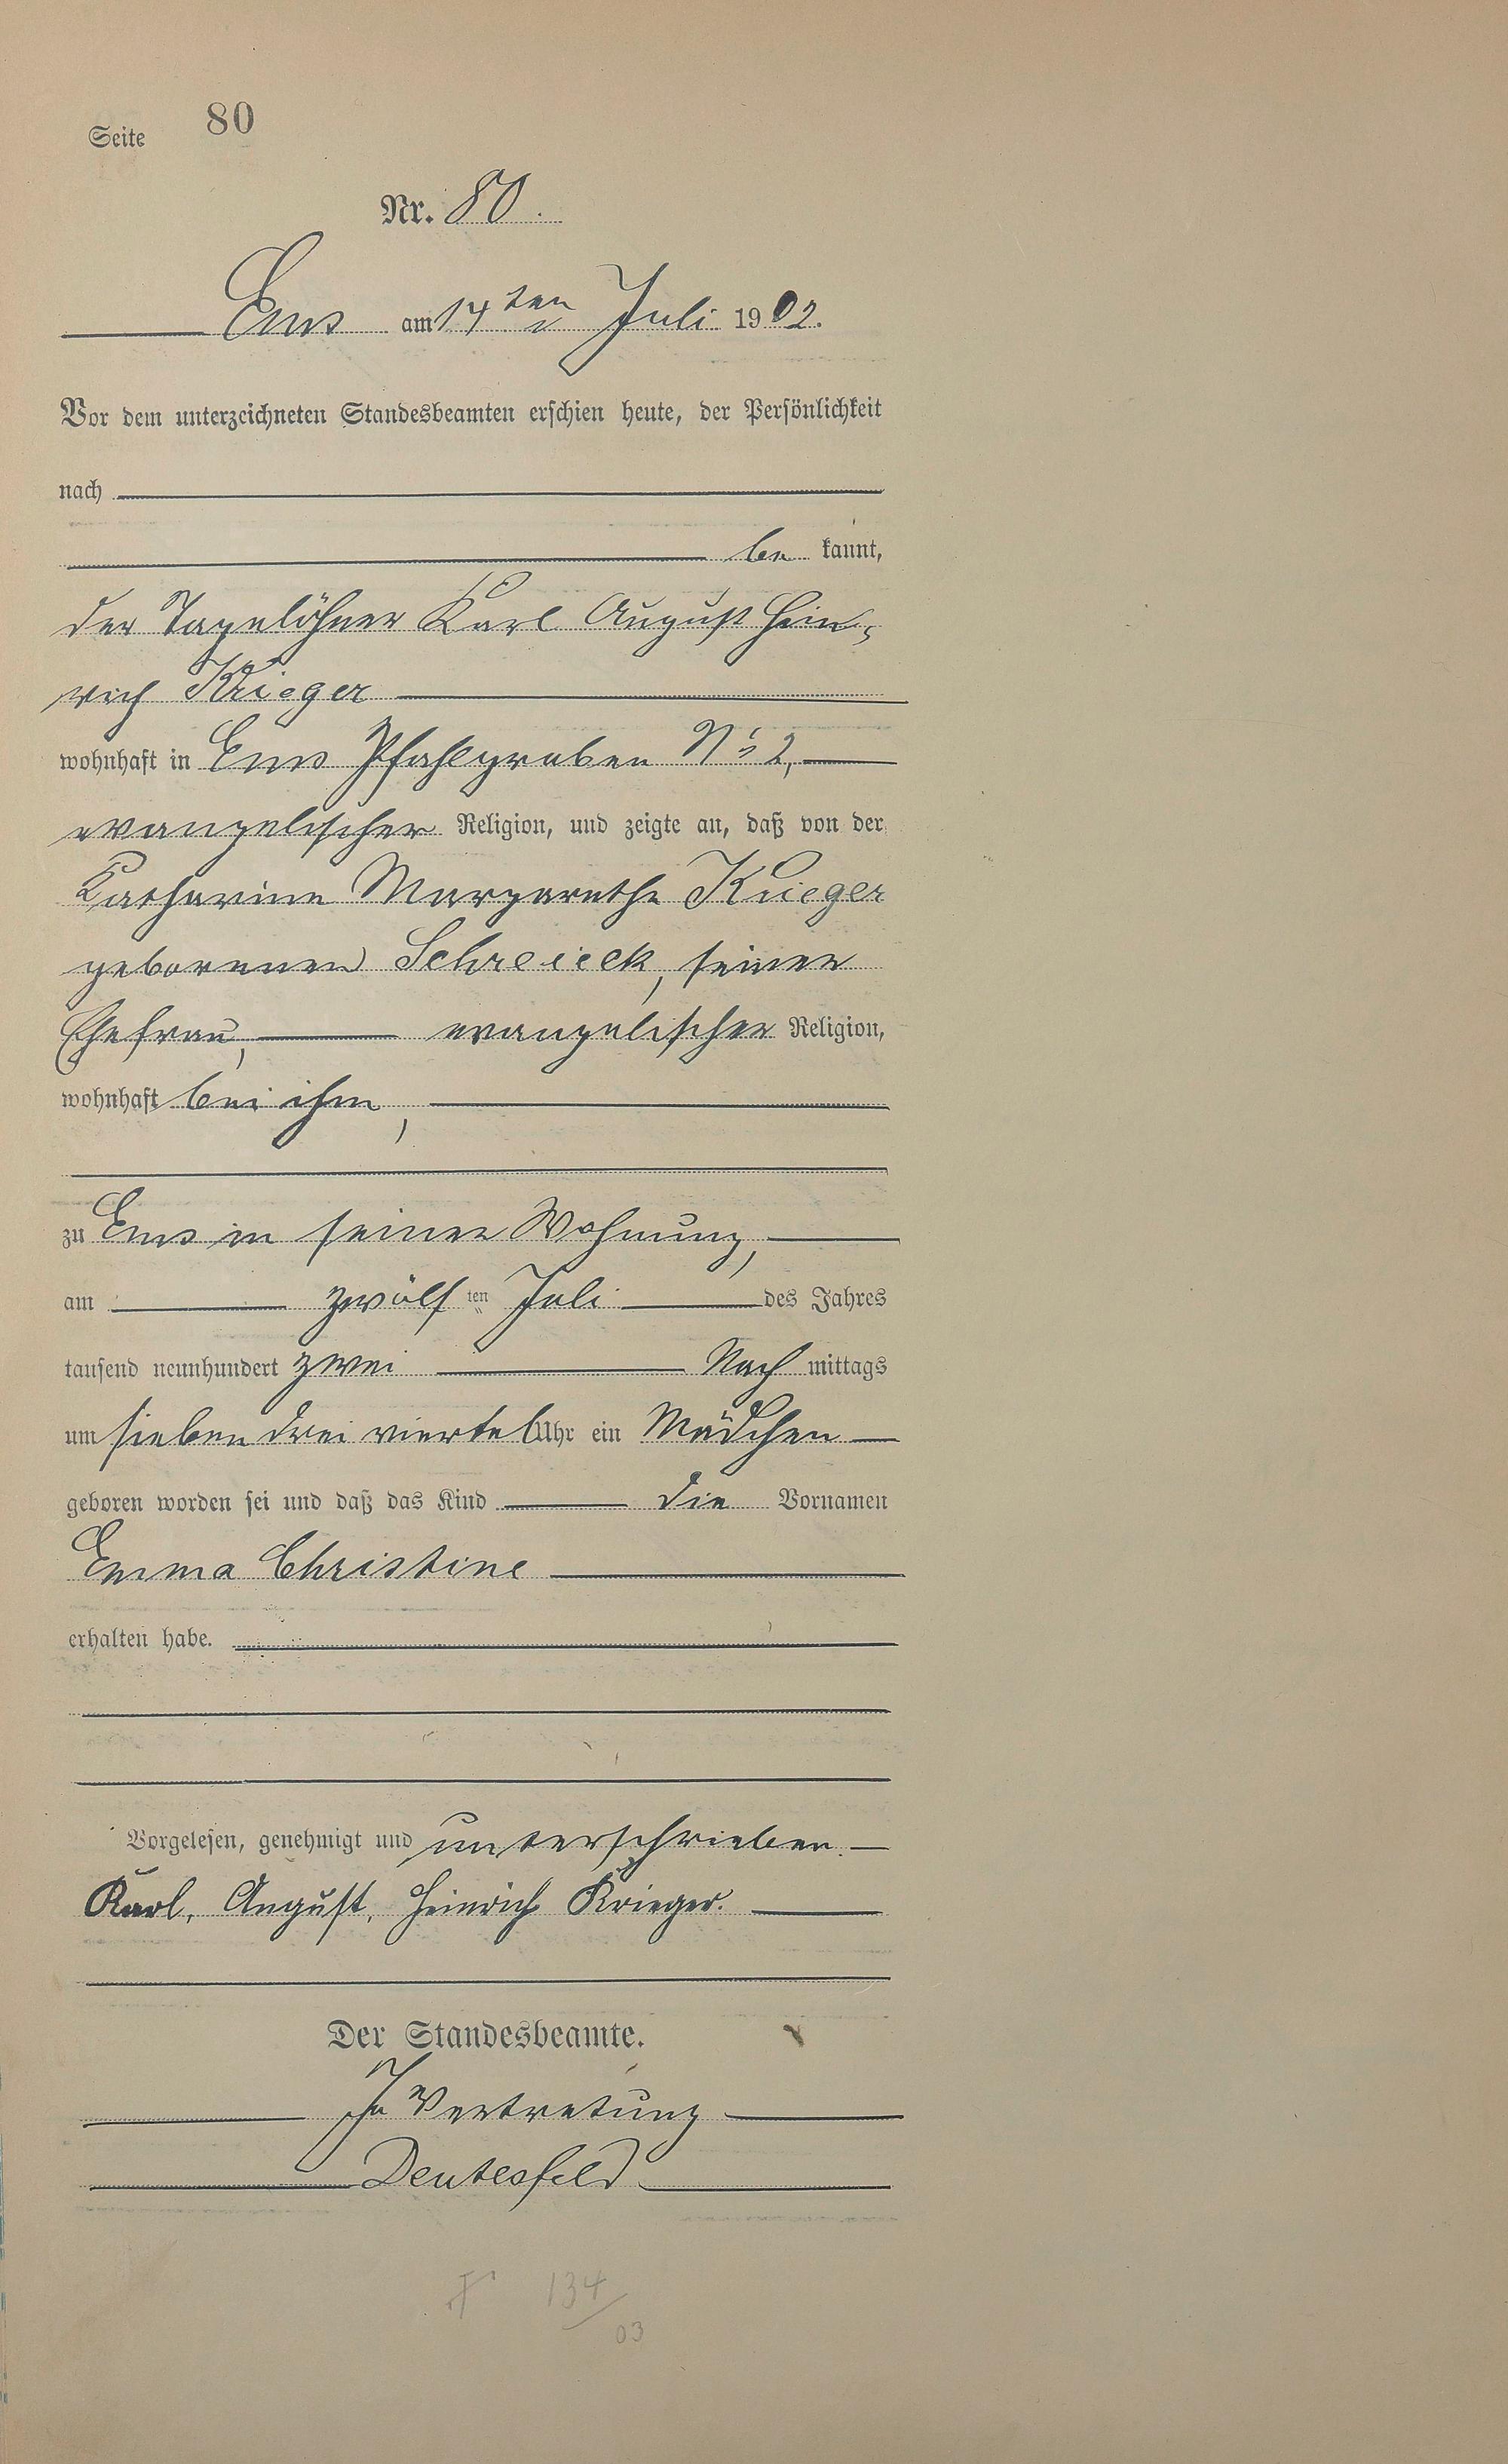 Seite 80
Nr. 80.
Ems am 14ten Juli 1902.
Vor dem unterzeichneten Standesbeamten erschien heute, der Persönlichkeit
nach
be kannt,
der Tagelöhner Karl August Hein-
rich Krieger
wohnhaft in Ems Pfahlgraben No 2,
evangelischer Religion, und zeigte an, daß von der
Katharine Margarethe Krieger
geborenen Schreieck, seiner
Ehefrau, evangelischer Religion,
wohnhaft bei ihm,
zu Ems in seiner Wohnung,
am zwölf ten Juli des Jahres
tausend neunhundert zwei Nach mittags
um sieben drei viertel Uhr ein Mädchen
geboren worden sei und daß das Kind die Vornamen
Emma Christine
erhalten habe.
Vorgelesen, genehmigt und unterschrieben.
Karl, August, Heinrich Krieger.
Der Standesbeamte.
In Vertretung
Deutesfeld
134/03